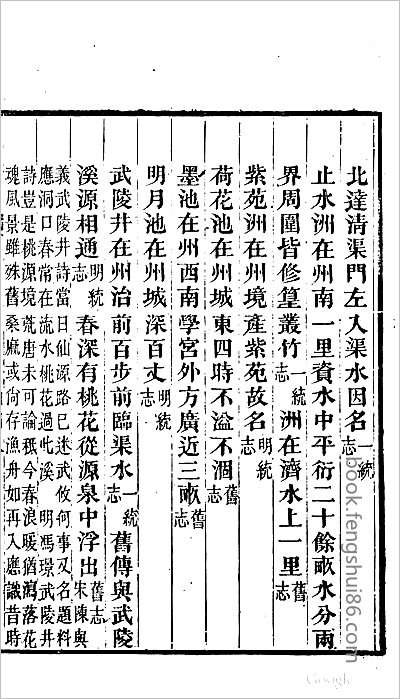 北達清渠門左入渠水因名一統志
止水洲在州南一里資水中平衍二十餘畝水分兩
界周圍皆修篁叢竹一統志洲在濟水上一里舊志
紫苑洲在州境產紫苑故名明統志
荷花池在州城東四時不溢不涸舊志
墨池在州西南學宮外方廣近三畝舊志
明月池在州城深百丈明統志
武陵井在州治前百步前臨渠水一統志舊傳與武陵
溪源相通明統志春深有桃花從源泉中浮出舊志宋陳與
義武陵井詩當日仙源路已迷武攸何事又名題料
應洞口春常在流水桃花過此溪明馮璟武陵井
詩豈是桃源境荒唐未可論穠今春浪暖猶瀉落花
魂風景雖殊舊桑麻或尚存漁舟如再入應識昔時
book.fengshui86.com